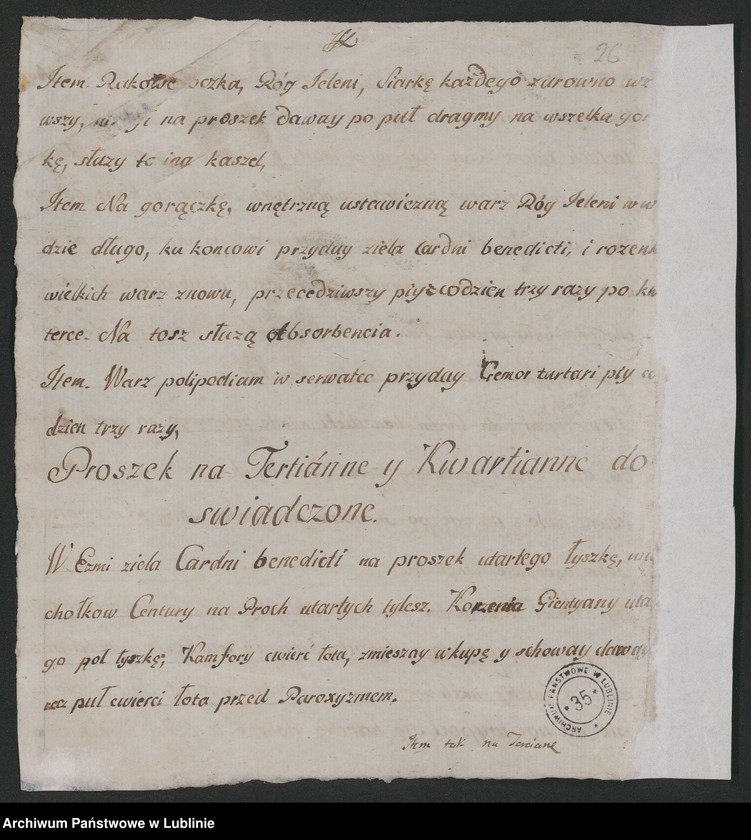 26
Item. Rakowe oczka, Róg Jeleni, Siarkę każdego zarowno
wszy, na proszek daway po puł dragmy na wszelką
kę, służy to i na kaszel,
Item. Na gorączkę, wnętrzną ustawiczną warz Róg Jeleni w
dzie długo, ku koncowi przyday ziela Cardni benedicti, i
wielkich warz znowu, przecedziwszy piy codzien trzy razy po
terce. Na tosz służą Absorbencia.
Item. Warz polipodiam w serwatce przyday Cemor tartari piy
dzien trzy razy,
Proszek na Tertiánne y Kwartianne do
swiadczone.
W Ezmi ziela Cardni benedicti na proszek utartego łyszkę,
chołkow Century na Proch utartych tylesz. Korzenia Gientyany
go pol łyszkę; Kamfory cwierć łota, zmieszay wkupę y schoway
raz puł cwierci łota przed Paroxyzmem.
Item tak na Tercianę
ARCHIWUM PAŃSTWOWE W LUBLINIE
* 35 *
Archiwum Państwowe w Lublinie